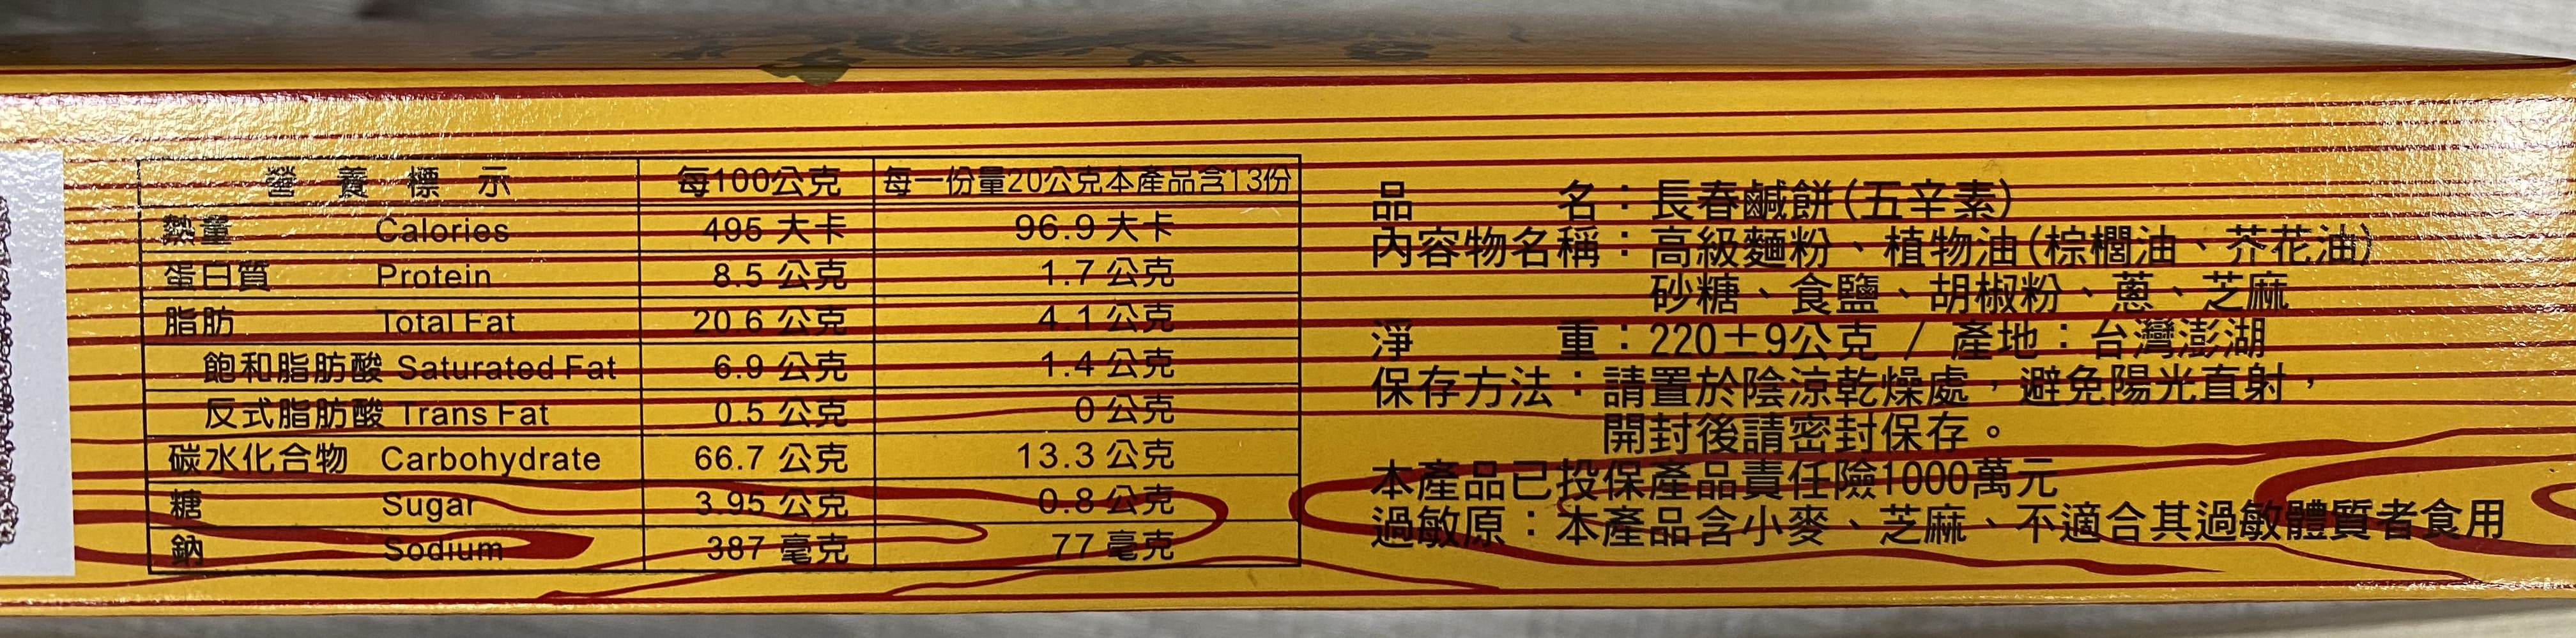 營養標示 每100公克 每一份量20公克本產品含13份
熱量 Calories 495 大卡 96.9 大卡
蛋白質 Protein 8.5 公克 1.7 公克
脂肪 Total Fat 20.6 公克 4.1 公克
飽和脂肪酸 Saturated Fat 6.9 公克 1.4 公克
反式脂肪酸 Trans Fat 0.5 公克 0 公克
碳水化合物 Carbohydrate 66.7 公克 13.3 公克
糖 Sugar 3.95 公克 0.8 公克
鈉 Sodium 387 毫克 77 毫克
品名：長春鹹餅(五辛素)
內容物名稱：高級麵粉、植物油(棕櫚油、芥花油)
砂糖、食鹽、胡椒粉、蔥、芝麻
淨重：220±9公克 / 產地：台灣澎湖
保存方法：請置於陰涼乾燥處，避免陽光直射，
開封後請密封保存。
本產品已投保產品責任險1000萬元
過敏原：本產品含小麥、芝麻、不適合其過敏體質者食用